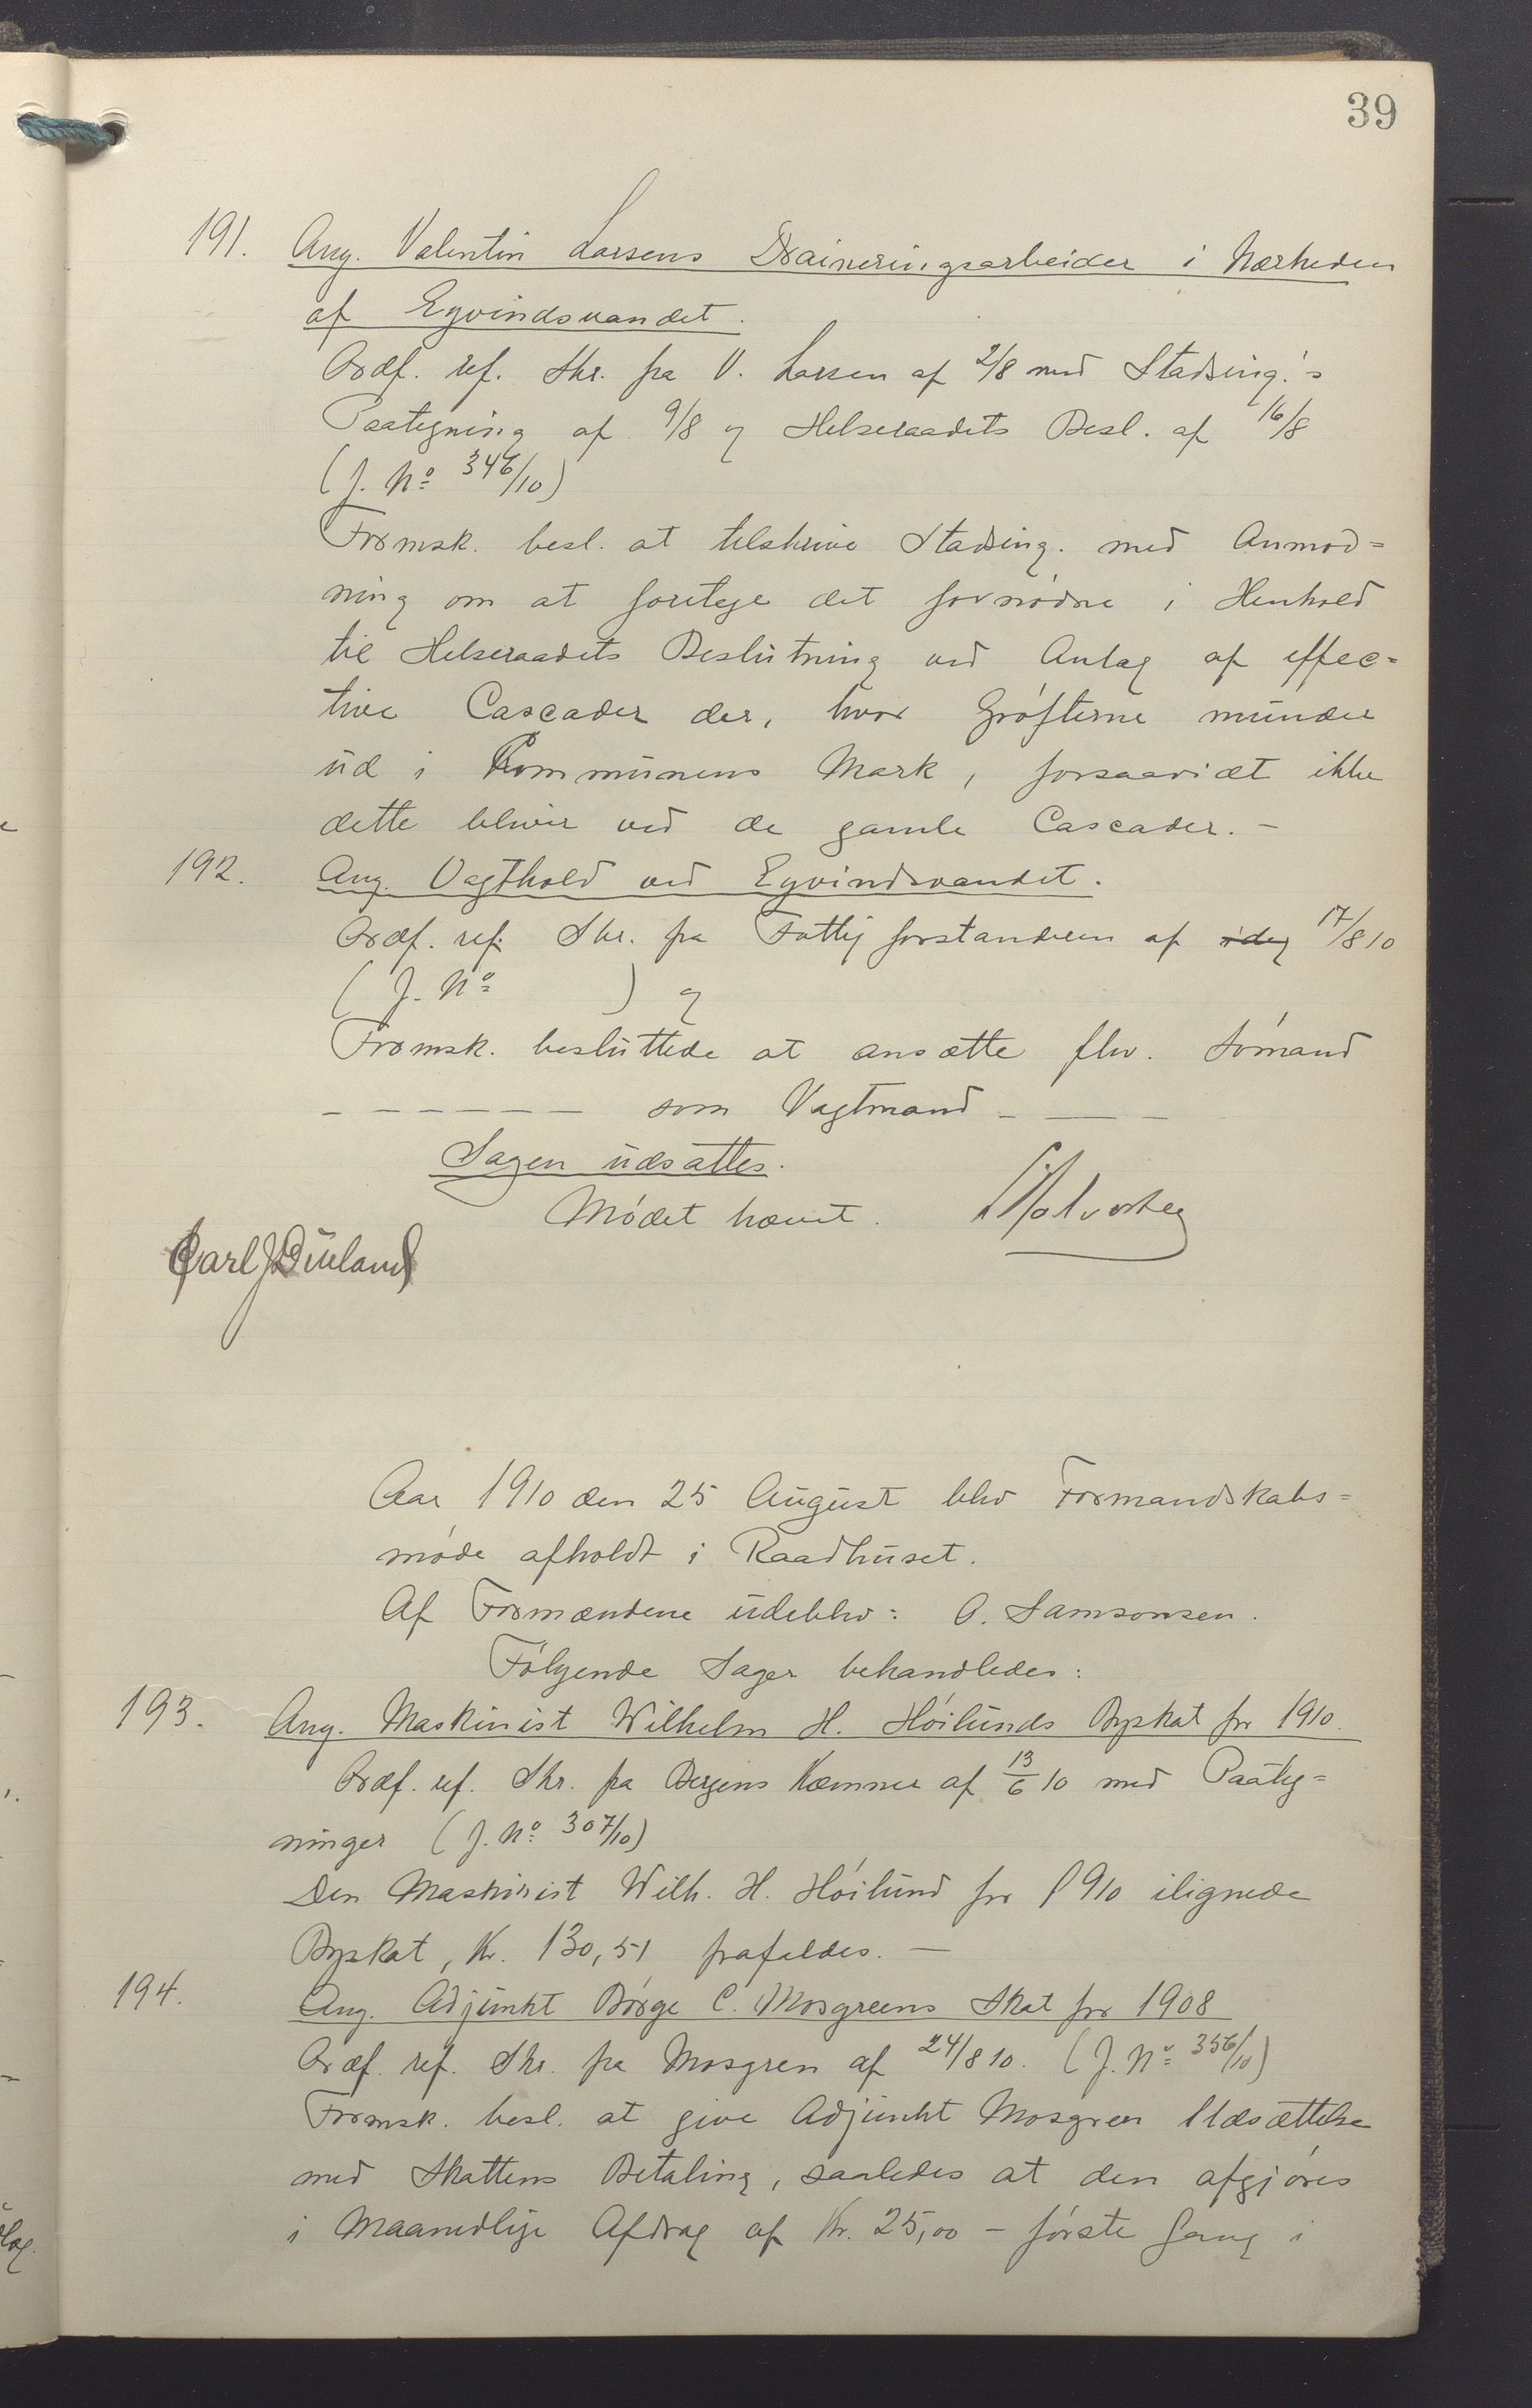 39
191. Ang. Valentin Larsens Draineringsarbeider i Nærheden
af Eyvindsvandet.
Ordf. ref. Skr. fra V. Larsen af 2/8 med Stadsing.'s
Paategning af 9/8 og Helseraadets Besl. af 16/8
(J. No 346/10)
Formsk. besl. at tilskrive Stadsing. med Anmod=
ning om at foretage det fornødne i Henhold
til Helseraadets Beslutning ved Anlæg af effec=
tive Cascader der, hvor Grøfterne munder
ud i Kommunens Mark, forsaavidt ikke
dette bliver ved de gamle Cascader. –
192. Ang. Vagthold ved Eyvindsvandet.
Ordf. ref. Skr. fra Fattigforstanderen af idag 17/8 10
( J. No ) og
Formsk. besluttede at ansætte fhv. Sømand
– – – – – – – som Vagtmand – – – –
Sagen udsattes.
Mødet hævet.
Carl J. Buland
Aar 1910 den 25 August blev Formandskabs=
møde afholdt i Raadhuset.
Af Formændene udeblev: O. Samsonsen.
Følgende Sager behandledes:
193. Ang. Maskinist Wilhelm H. Høilunds Byskat for 1910.
Ordf. ref. Skr. fra Bergens Kæmner af 13/6 10 med Paateg=
ninger (J. No 307/10)
Den Maskinist Wilh. H. Høilund for 1910 ilignede
Byskat, Kr. 130,51 frafaldes. –
194. Ang. Adjunkt Børge C. Mosgreens Skat for 1908
Ordf. ref. Skr. fra Mosgren af 24/8 10. (J. No 356/10)
Formsk. besl. at give Adjunkt Mosgren Udsættelse
med Skattens Betaling, saaledes at den afgjøres
i Maanedlige Afdrag af Kr. 25,00 – første Gang i